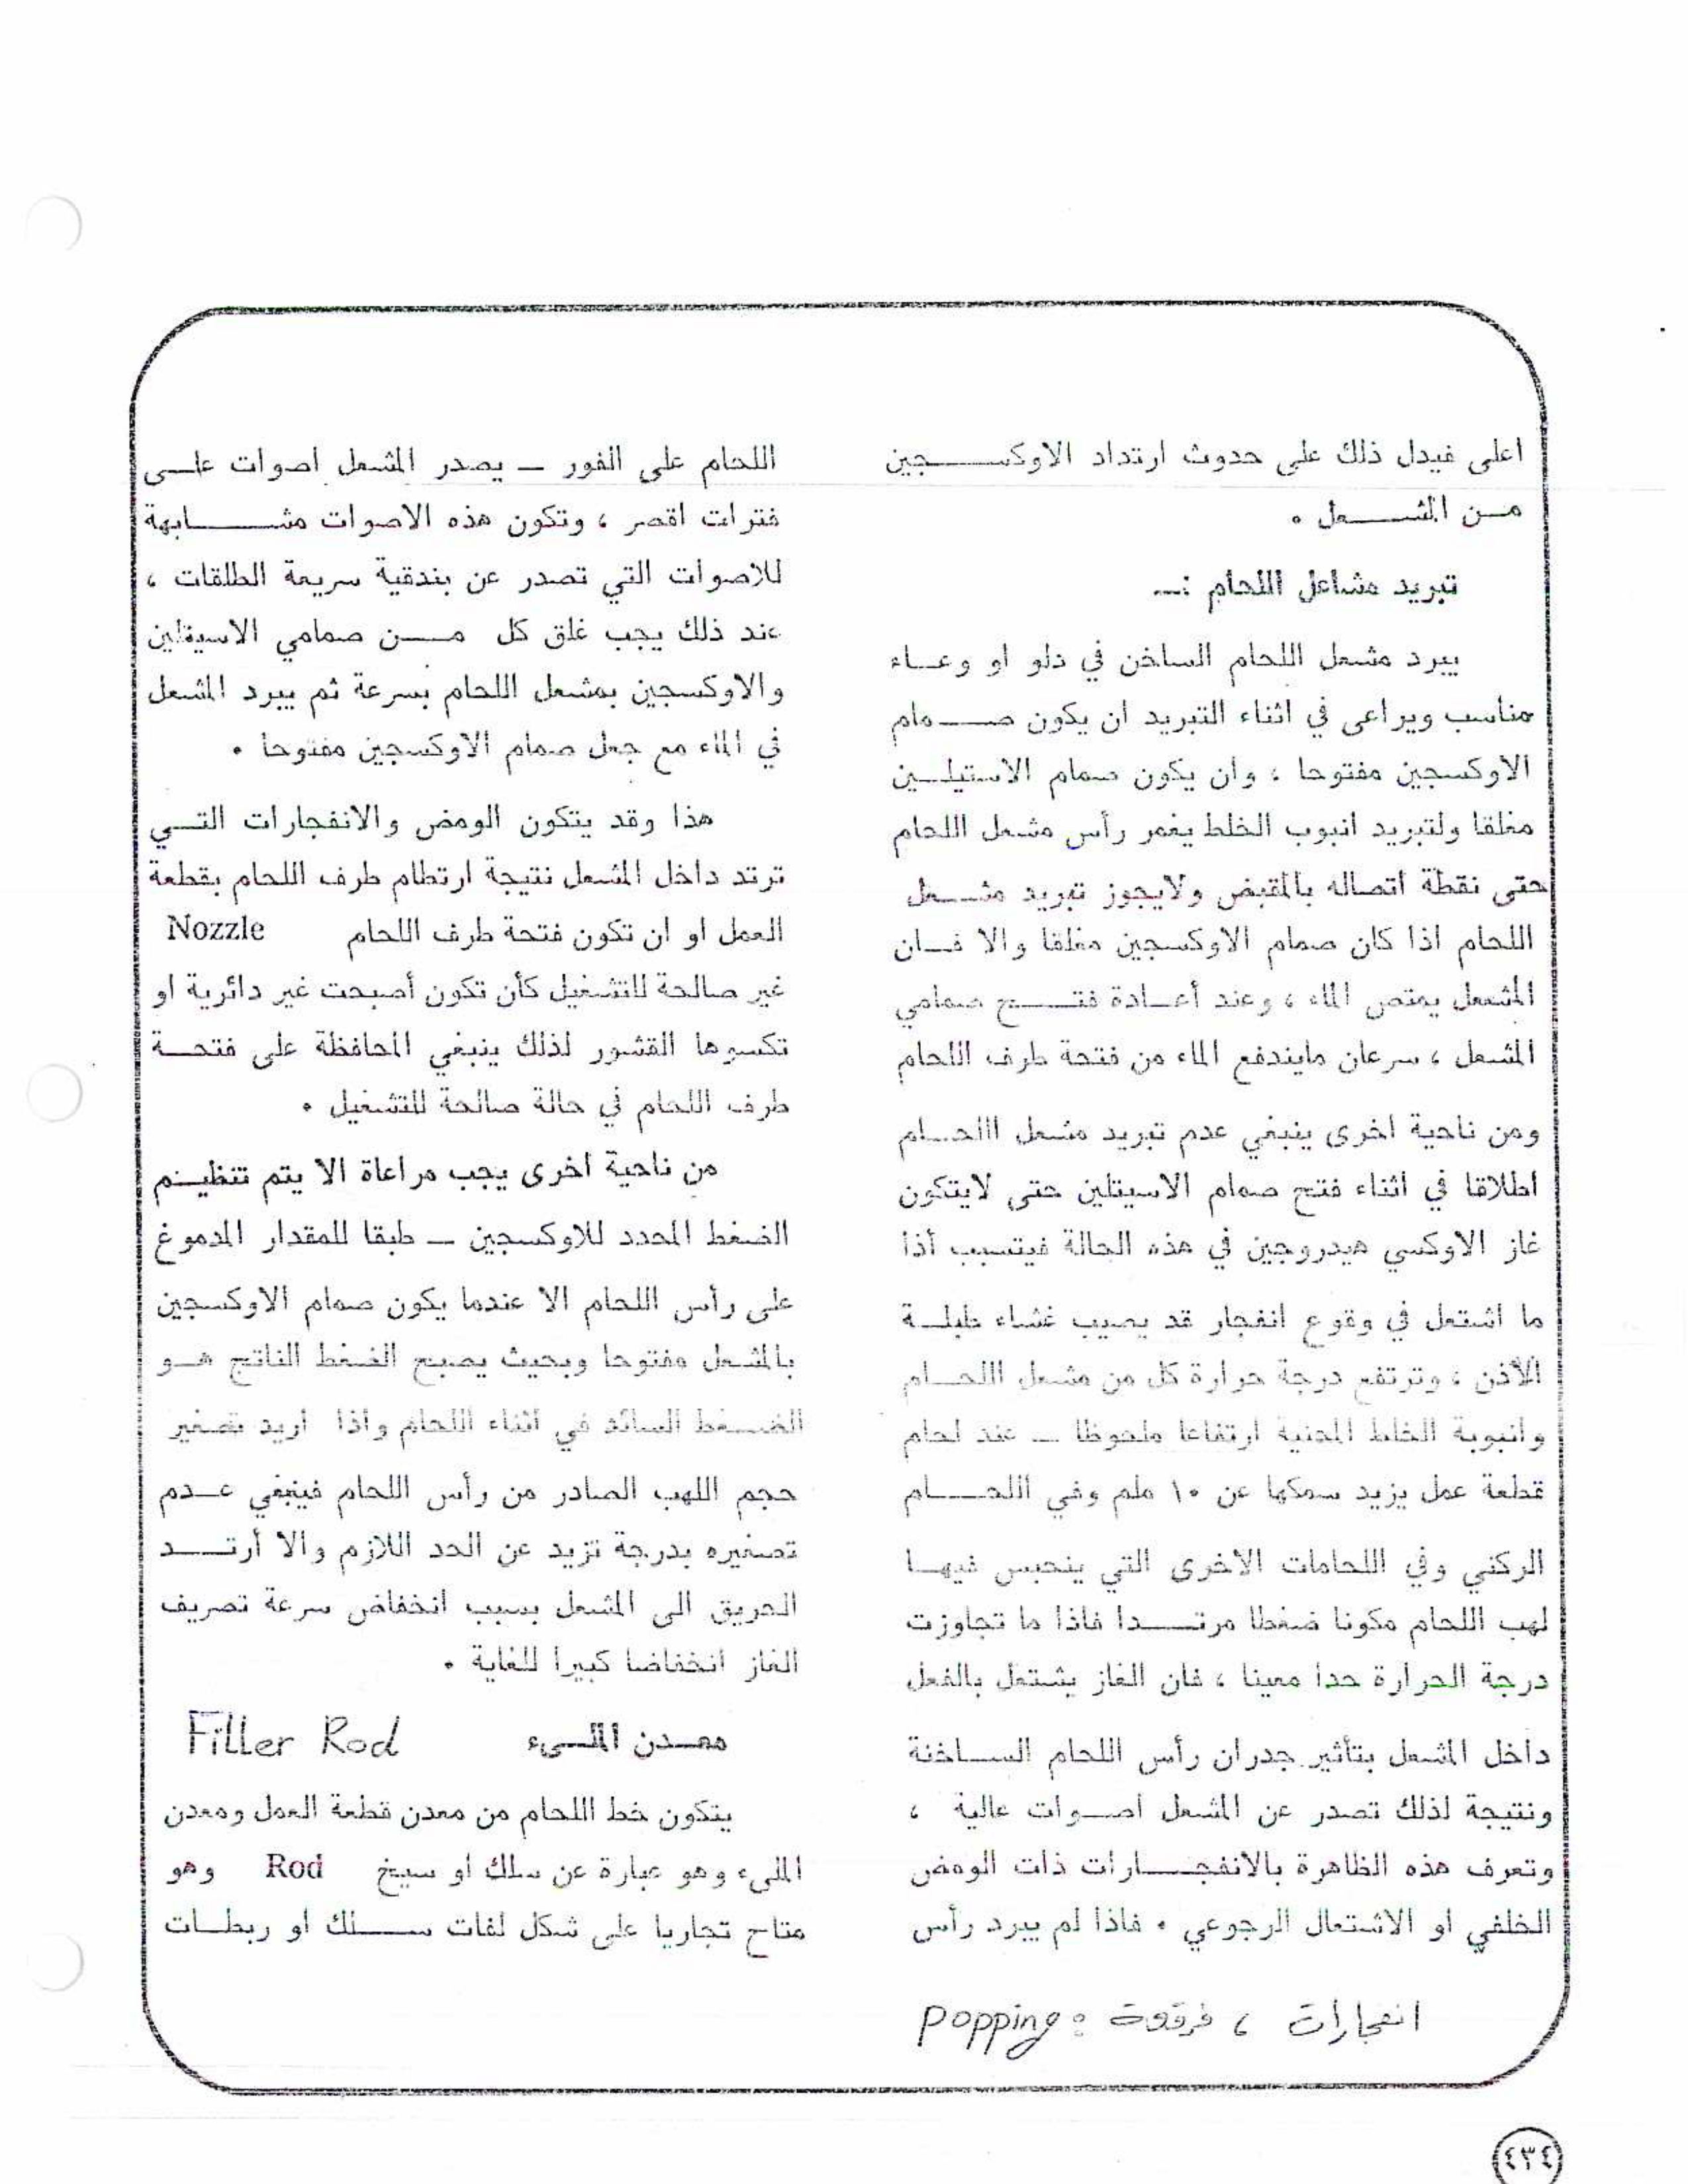 اعلى فيدل ذلك على حدوث ارتداد الاوكسجين
من المشعل .
تبريد مشاعل اللحام :ـ
يبرد مشعل اللحام الساخن في دلو او وعاء
مناسب ويراعى في اثناء التبريد ان يكون صمام
الاوكسجين مفتوحا ، وان يكون صمام الاستيلين
مغلقا ولتبريد انبوب الخلط يغمر رأس مشعل اللحام
حتى نقطة اتصاله بالمقبض ولايجوز تبريد مشعل
اللحام اذا كان صمام الاوكسجين مغلقا والا فان
المشعل يمتص الماء ، وعند أعادة فتح صمامي
المشعل ، سرعان مايندفع الماء من فتحة طرف اللحام
ومن ناحية اخرى ينبغي عدم تبريد مشعل اللحام
اطلاقا في اثناء فتح صمام الاسيتلين حتى لايتكون
غاز الاوكسي هيدروجين في هذه الحالة فيتسبب أذا
ما اشتعل في وقوع انفجار قد يصيب غشاء طبلة
الأذن ، وترتفع درجة حرارة كل من مشعل اللحام
وانبوبة الخلط المحنية ارتفاعا ملحوظا ـ عند لحام
قطعة عمل يزيد سمكها عن ١٠ ملم وفي اللحام
الركني وفي اللحامات الاخرى التي ينحبس فيها
لهب اللحام مكونا ضغطا مرتدا فاذا ما تجاوزت
درجة الحرارة حدا معينا ، فان الغاز يشتعل بالفعل
داخل المشعل بتأثير جدران رأس اللحام الساخنة
ونتيجة لذلك تصدر عن المشعل اصوات عالية ،
وتعرف هذه الظاهرة بالانفجارات ذات الومض
الخلفي او الاشتعال الرجوعي . فاذا لم يبرد رأس
انفجارات ، فرقعة : popping
اللحام على الفور ـ يصدر المشعل اصوات على
فترات اقصر ، وتكون هذه الاصوات مشابهة
للاصوات التي تصدر عن بندقية سريعة الطلقات ،
عند ذلك يجب غلق كل من صمامي الاسيتلين
والاوكسجين بمشعل اللحام بسرعة ثم يبرد المشعل
في الماء مع جعل صمام الاوكسجين مفتوحا .
هذا وقد يتكون الومض والانفجارات التي
ترتد داخل المشعل نتيجة ارتطام طرف اللحام بقطعة
العمل او ان تكون فتحة طرف اللحام Nozzle
غير صالحة للتشغيل كأن تكون أصبحت غير دائرية او
تكسوها القشور لذلك ينبغي المحافظة على فتحة
طرف اللحام في حالة صالحة للتشغيل .
من ناحية اخرى يجب مراعاة الا يتم تنظيم
الضغط المحدد للاوكسجين ـ طبقا للمقدار المدموغ
على رأس اللحام الا عندما يكون صمام الاوكسجين
بالمشعل مفتوحا وبحيث يصبح الضغط الناتج هو
الضغط السائد في اثناء اللحام واذا اريد تصغير
حجم اللهب الصادر من رأس اللحام فينبغي عدم
تصغيره بدرجة تزيد عن الحد اللازم والا أرتد
الحريق الى المشعل بسبب انخفاض سرعة تصريف
الغاز انخفاضا كبيرا للغاية .
معدن الملىء Filler Rod
يتكون خط اللحام من معدن قطعة العمل ومعدن
الملىء وهو عبارة عن سلك أو سيخ Rod وهو
متاح تجاريا على شكل لفات سلك او ربطات
٤٣٤